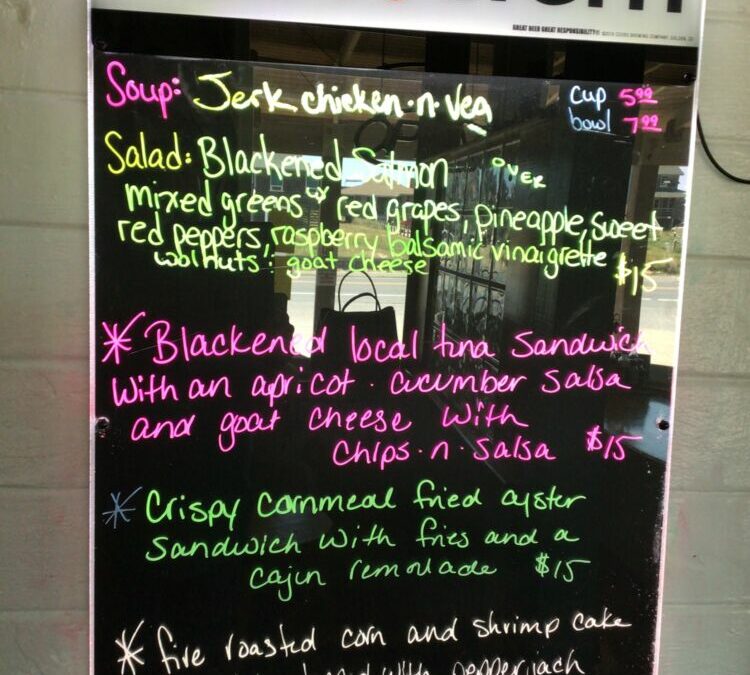 GREAT BEER GREAT RESPONSIBILITY®
Soup: Jerk chicken·n·veg cup 5.99
bowl 7.99
Salad: Blackened Salmon over
mixed greens w/ red grapes, pineapple, sweet
red peppers, raspberry balsamic vinaigrette
walnuts : goat cheese $15
* Blackened local tuna Sandwich
with an apricot · cucumber salsa
and goat cheese with
chips·n·salsa $15
* Crispy cornmeal fried oyster
sandwich with fries and a
cajun remoulade $15
* fire roasted corn and shrimp cake
with pepperjack